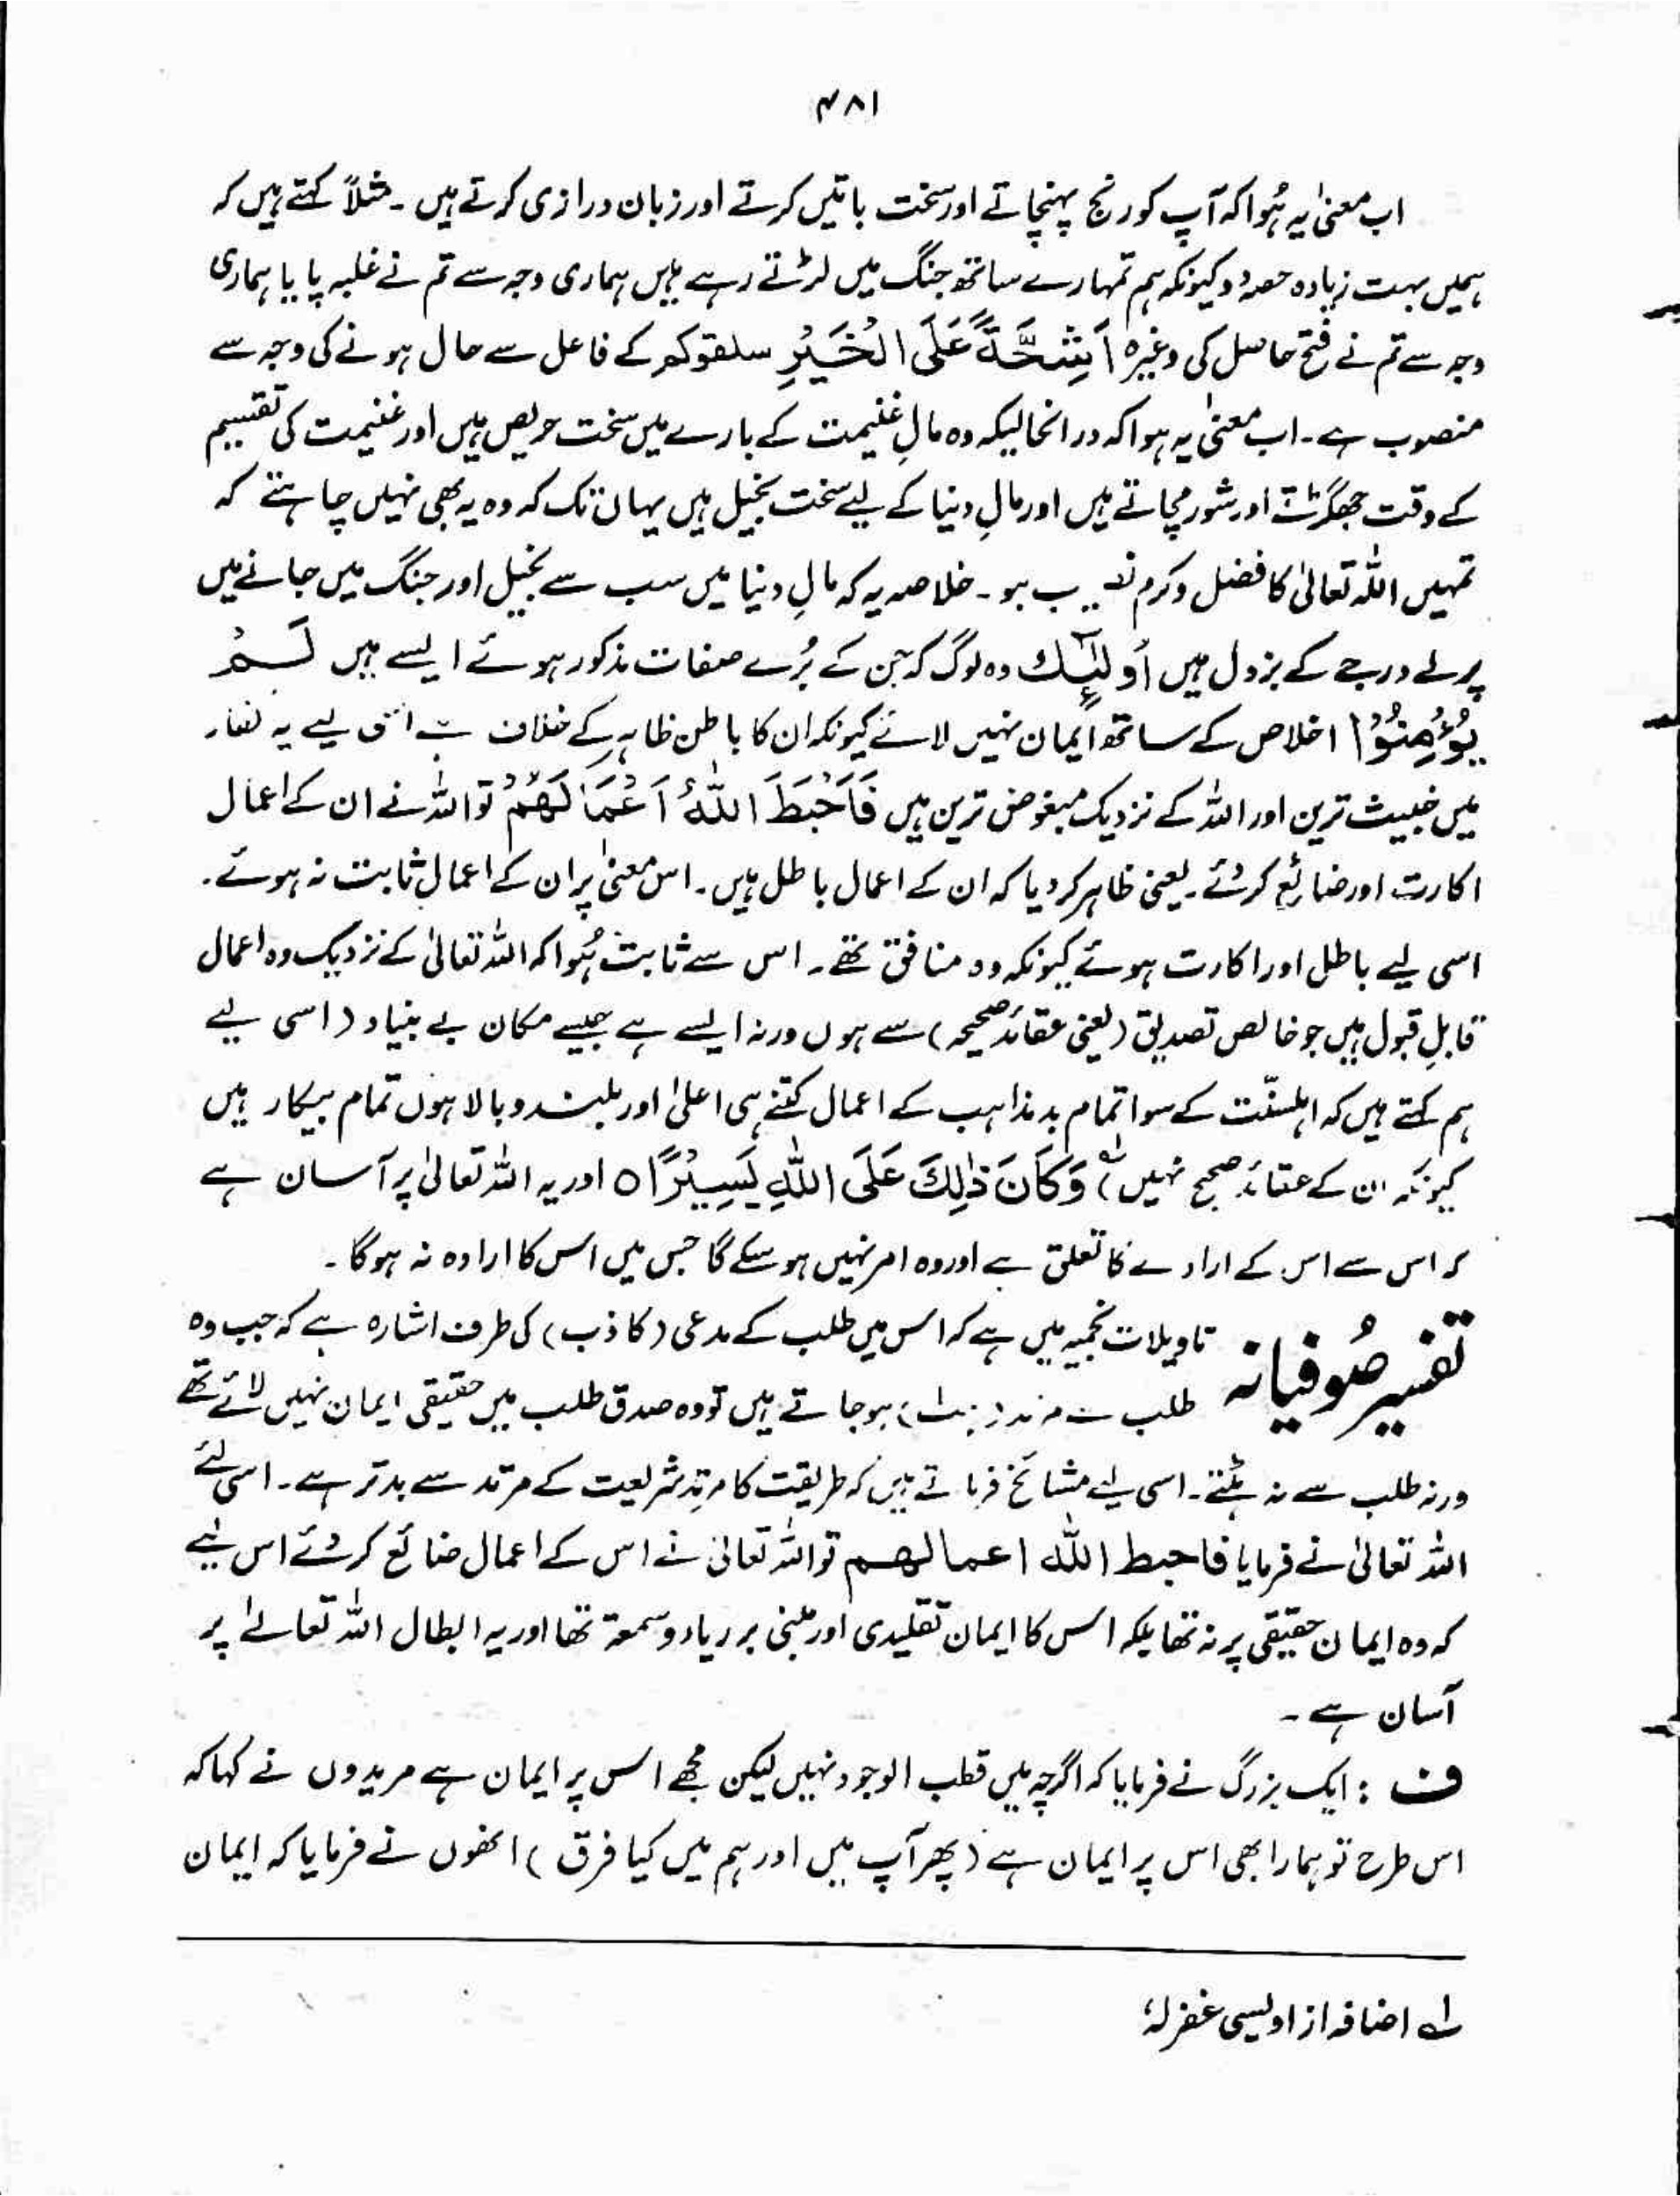 ۴۸۱
اب معنیٰ یہ ہُوا کہ آپ کو رنج پہنچاتے اور سخت باتیں کرتے اور زبان درازی کرتے ہیں ۔ مثلاً کہتے ہیں کہ
ہمیں بہت زیادہ حصہ دو کیونکہ ہم تمہارے ساتھ جنگ میں لڑتے رہے ہیں ہماری وجہ سے تم نے غلبہ پایا ہماری
وجہ سے تم نے فتح حاصل کی وغیرہ اَشِحَّةً عَلَى الْخَيْرِ سلقوکم کے فاعل سے حال ہونے کی وجہ سے
منصوب ہے ۔ اب معنیٰ یہ ہوا کہ درانحالیکہ وہ مالِ غنیمت کے بارے میں سخت حریص ہیں اور غنیمت کی تقسیم
کے وقت جھگڑتے اور شور مچاتے ہیں اور مالِ دنیا کے لیے سخت بخیل ہیں یہاں تک کہ وہ یہ بھی نہیں چاہتے کہ
تمہیں اللہ تعالیٰ کا فضل و کرم ہو ۔ خلاصہ یہ کہ مالِ دنیا میں سب سے بخیل اور جنگ میں جانے میں
پرلے درجے کے بزدل ہیں اُولٰٓئِكَ وہ لوگ کہ جن کے بُرے صفات مذکور ہوئے ایسے ہیں لَمْ
يُؤْمِنُوْا اخلاص کے ساتھ ایمان نہیں لائے کیونکہ ان کا باطن ظاہر کے خلاف لیے یہ
میں خبیث ترین اور اللہ کے نزدیک مبغوض ترین ہیں فَاَحْبَطَ اللّٰهُ اَعْمَالَهُمْ تو اللہ نے ان کے اعمال
اکارت اور ضائع کر دئے ۔ یعنی ظاہر کر دیا کہ ان کے اعمال باطل ہیں ۔ اس معنیٰ پر ان کے اعمال ثابت نہ ہوئے ۔
اسی لیے باطل اور اکارت ہوئے کیونکہ وہ منافق تھے ۔ اس سے ثابت ہُوا کہ اللہ تعالیٰ کے نزدیک وہ اعمال
قابلِ قبول ہیں جو خالص تصدیق (یعنی عقائد صحیحہ) سے ہوں ورنہ ایسے ہے جیسے مکان بے بنیاد (اسی لیے
ہم کہتے ہیں کہ اہلسنّت کے سوا تمام بد مذاہب کے اعمال کتنے ہی اعلیٰ اور بلند و بالا ہوں تمام بیکار ہیں
کیونکہ ان کے عقائد صحیح نہیں) لہ وَكَانَ ذٰلِكَ عَلَى اللّٰهِ يَسِيْرًا ۝ اور یہ اللہ تعالیٰ پر آسان ہے
کہ اس سے اس کے ارادے کا تعلق ہے اور وہ امر نہیں ہو سکے گا جس میں اس کا ارادہ نہ ہوگا ۔
تفسیر صُوفیانہ تاویلات نجمیہ میں ہے کہ اس میں طلب کے مدعی (کاذب) کی طرف اشارہ ہے کہ جب وہ
طلب ہو جاتے ہیں تو وہ صدق طلب میں حقیقی ایمان نہیں لائے تھے
ورنہ طلب سے نہ ہٹتے ۔ اسی لیے مشائخ فرماتے ہیں کہ طریقت کا مرتد شریعت کے مرتد سے بدتر ہے ۔ اسی لئے
اللہ تعالیٰ نے فرمایا فاحبط اللہ اعمالھم تو اللہ تعالیٰ نے اس کے اعمال ضائع کر دئے اس لیے
کہ وہ ایمان حقیقی پر نہ تھا بلکہ اس کا ایمان تقلیدی اور مبنی بر ریاد و سمعۃ تھا اور یہ ابطال اللہ تعالےٰ پر
آسان ہے ۔
ف : ایک بزرگ نے فرمایا کہ اگرچہ میں قطب الوجود نہیں لیکن مجھے اس پر ایمان ہے مریدوں نے کہا کہ
اس طرح تو ہمارا بھی اس پر ایمان ہے (پھر آپ میں اور ہم میں کیا فرق) انھوں نے فرمایا کہ ایمان
لہ اضافہ از اویسی غفر لہٗ